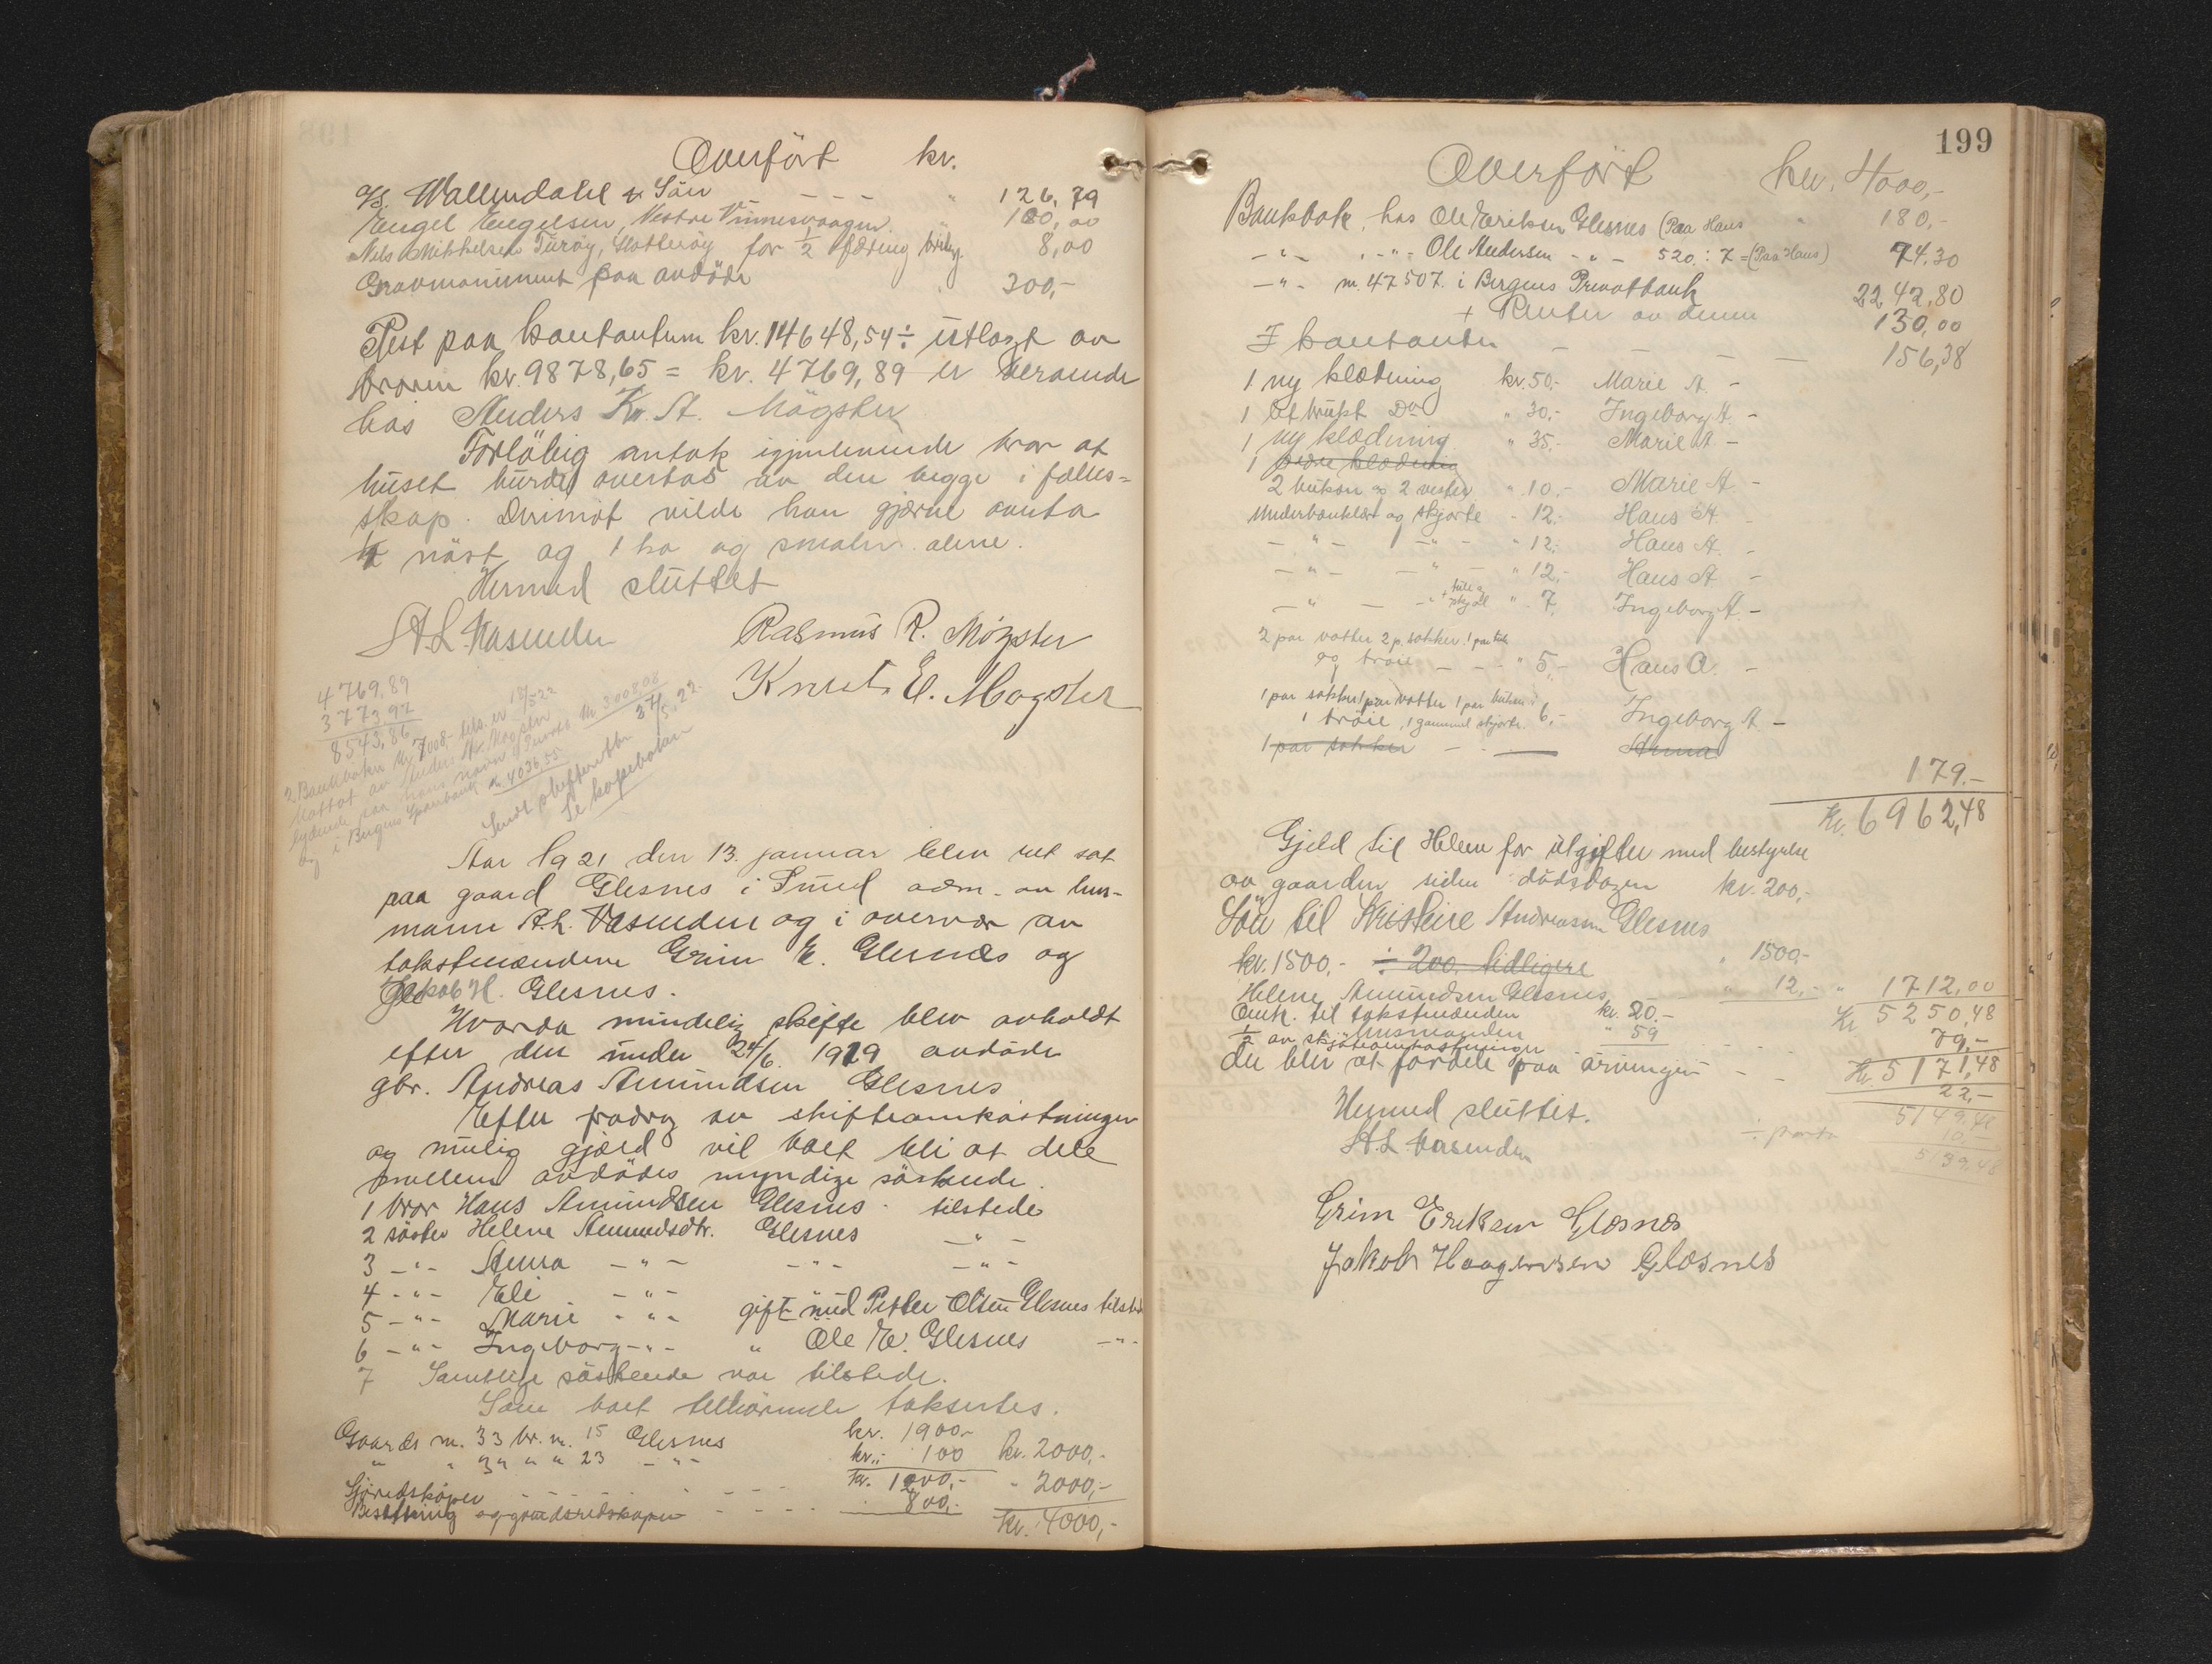 Overført kr.
A/S. Wallendahl & Søn - - - " 126,79
Engel Engelsen, Vestre Vinnesvaagen " 100,00
Nils Mikkelsen Türøy, for ½ færing 8,00
Gravmoniment paa avdöde 300,-
Rest paa kontantum kr. 14648,54 ÷ utlagt av
broren kr. 9878,65 = kr. 4769,89 er beroende
hos Anders Kr. A. Mögster
Forlöbig antok igjenlevende bror at
huset burde overtas av den begge i felles=
skap. Derimot vilde han gjerne avsta
½ nöst og 1 ko og smaler alene.
Hermed sluttet
A.L. Vasenden
Rasmus R. Møgster
Knut E. Magster
4769,89
3773,97
8543,86
2 Bankbøker
mottat av Anders Kr. Mögster
lydende paa hans navn i
og i Bergens Sparebank 4036,55
Sendt skifteretten 31/5.22.
Se kopiboken
Aar 1921 den 13. januar blev ret sat
paa gaard Glesnes i Sund adm. av lens-
mann A.L. Vasenden og i overvær av
takstmændene Grim E. Glesnes og
Jakob H. Glesnes.
Hvorda mindelig skifte blev avholdt
efter den under 24/6. 1919 avdöde
gbr. Andreas Amundsen Glesnes
Efter fradrag av skifteomkostninger
og mulig gjæld vil boet bli at dele
mellem avdödes myndige söskende.
1 bror Hans Amundsen Glesnes - tilstede
2 söster Helene Amundsdtr. Glesnes - " -
3 - " - Anna - " - - " - - " -
4 - " - Eli - " -
5 - " - Marie - " - gift med Petter Olsen Glesnes tilsted
6 - " - Ingeborg - " - " Ole E. Glesnes - " -
7 Samtlige söskende var tilstede.
Som boet tilhörende taksertes.
Gaards n. 33 br. n. 15 Glesnes kr. 1900.-
" " 34 " " 23 - " - kr. 100 kr. 2000,-
Sjöredskaper - - - kr. 1200,- - 2000,-
Besetning og gaardsredskaper - - - 800,-
kr. 4000,-
199
Overfört kr. 4000,-
Bankbok, hos Ole Eriksen Glesnes (Paa Hans " 180,-
- " - - " - Ole Andersen - " - 520 : 7 = (Paa Hans) 74,30
- " - nr. 47507. i Bergens Privatbank 2242,80
+ Renter av denne 130,00
I kontanter - - - - 156,38
1 ny klædning kr. 50,- Marie A. -
1 litt brukt Do " 30,- Ingeborg A -
1 ny klædning " 35,- Marie A -
1 ældre klædning
2 bukser og 2 vester " 10,- Marie A -
Underbenklær og skjorte - 12,- Hans A. -
- " - - " - " 12,- Hans A. -
- " - - " - " 12,- Hans A -
- " - - " - " 7, Ingeborg A. -
2 par votter 2 p. sokker 1 par
og tröie - - - " 5,- Hans A. -
1 par sokker 1 par votter 1 par bukser
1 tröie, 1 gammel skjorte 6,- Ingeborg A -
1 par sokker - - Anna
179.-
Kr. 6962,48
Gjeld til Helene for utgifter med bestyrelse
av gaarden siden dödsdagen kr. 200,-
Lön til Kristine Andreasen Glesnes
kr. 1500,- ÷ 200 tidligere " 1500,-
Helene Amundsen Glesnes " 12,- " 1712,00
Omk. til takstmænden kr. 20.- Kr 5250,48
lensmanden " 59
½ av skjöteomkostninger - - - 79,-
der blir at fordele paa arvinger - - Kr. 5171,48
22,-
Hermed sluttet. 5149,48
A.L. Vasenden ÷ porto 10,-
5139,48
Grim Eriksen Glesnes
Jakob Haagensen Glesnes